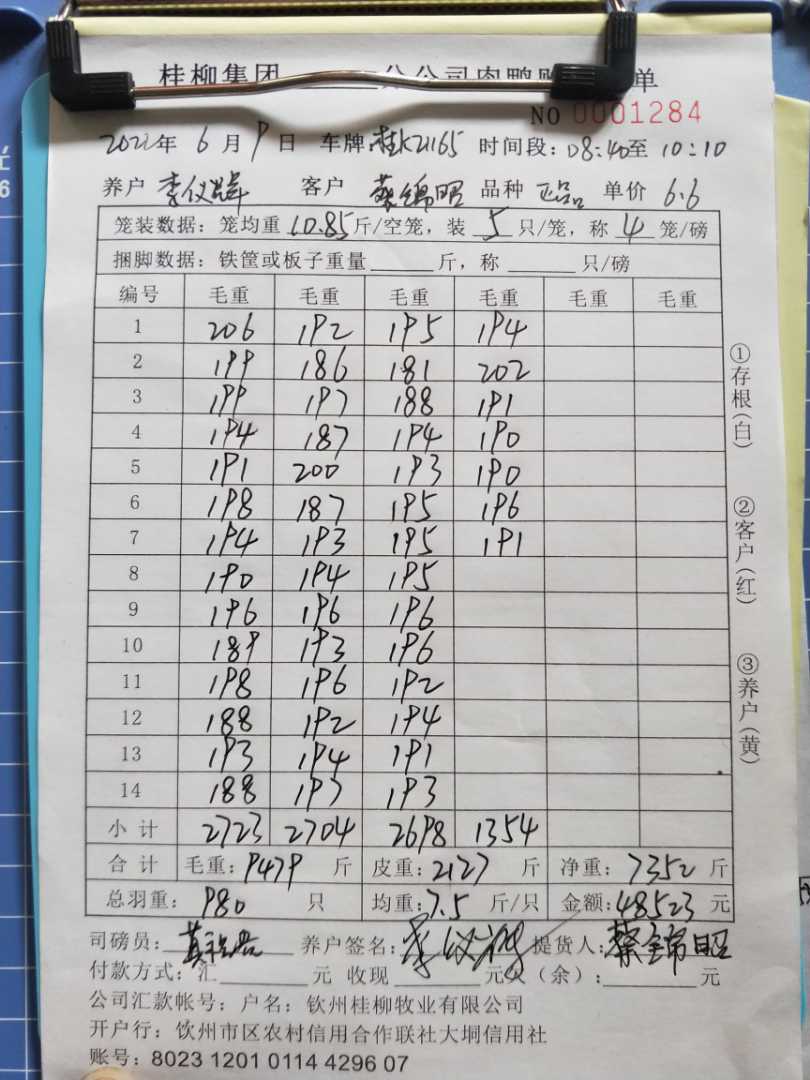 桂柳集团 分公司肉鸭 单
NO 0001284
2022年 6月9日 车牌 桂K21165 时间段:08:40至10:10
养户 李仪 客户 蔡锦昭 品种 正品 单价 6.6
笼装数据:笼均重 10.85斤/空笼,装 5 只/笼,称 4 笼/磅
捆脚数据:铁筐或板子重量 斤,称 只/磅
编号 毛重 毛重 毛重 毛重 毛重 毛重
1 206 192 195 194
2 199 186 181 202
3 199 197 188 191
4 194 187 194 190
5 191 200 193 190
6 198 187 195 196
7 194 193 195 191
8 190 194 195
9 196 196 196
10 189 193 196
11 198 196 192
12 188 192 194
13 193 194 191
14 188 197 193
小计 2723 2704 2698 1354
合计 毛重:9479 斤 皮重:2127 斤 净重:7352 斤
总羽重: 980 只 均重:7.5 斤/只 金额:48523 元
司磅员: 黄 养户签名:李仪 提货人:蔡锦昭
付款方式:汇 元 收现 元欠(余): 元
公司汇款帐号:户名:钦州桂柳牧业有限公司
开户行:钦州市区农村信用合作联社大垌信用社
账号:8023 1201 0114 4296 07
①存根(白)
②客户(红)
③养户(黄)